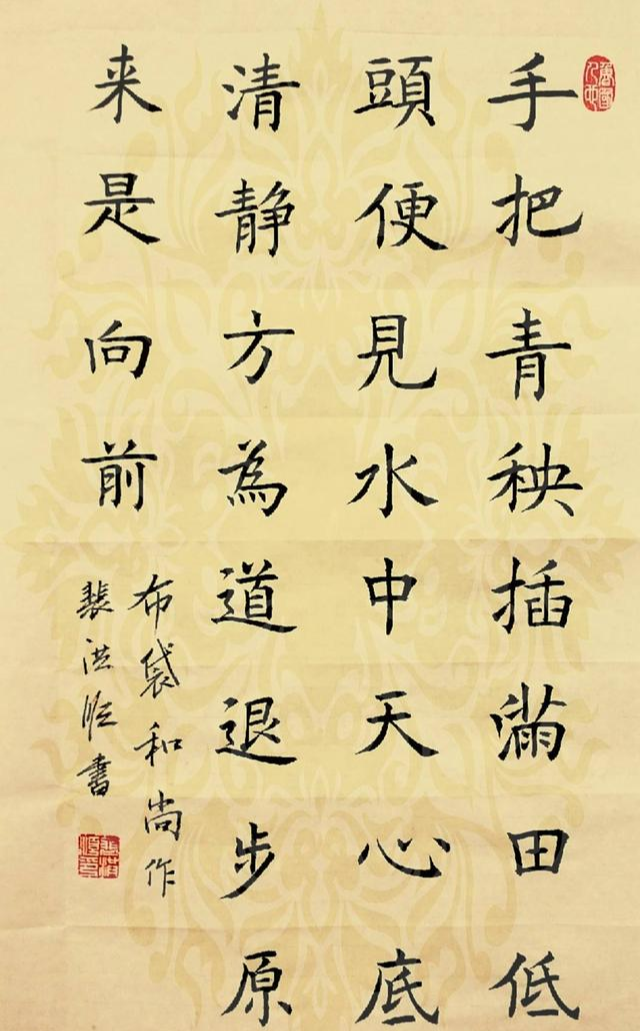 手把青秧插滿田低
頭便見水中天心底
清静方為道退步原
来是向前
布袋和尚作
裴洪順書